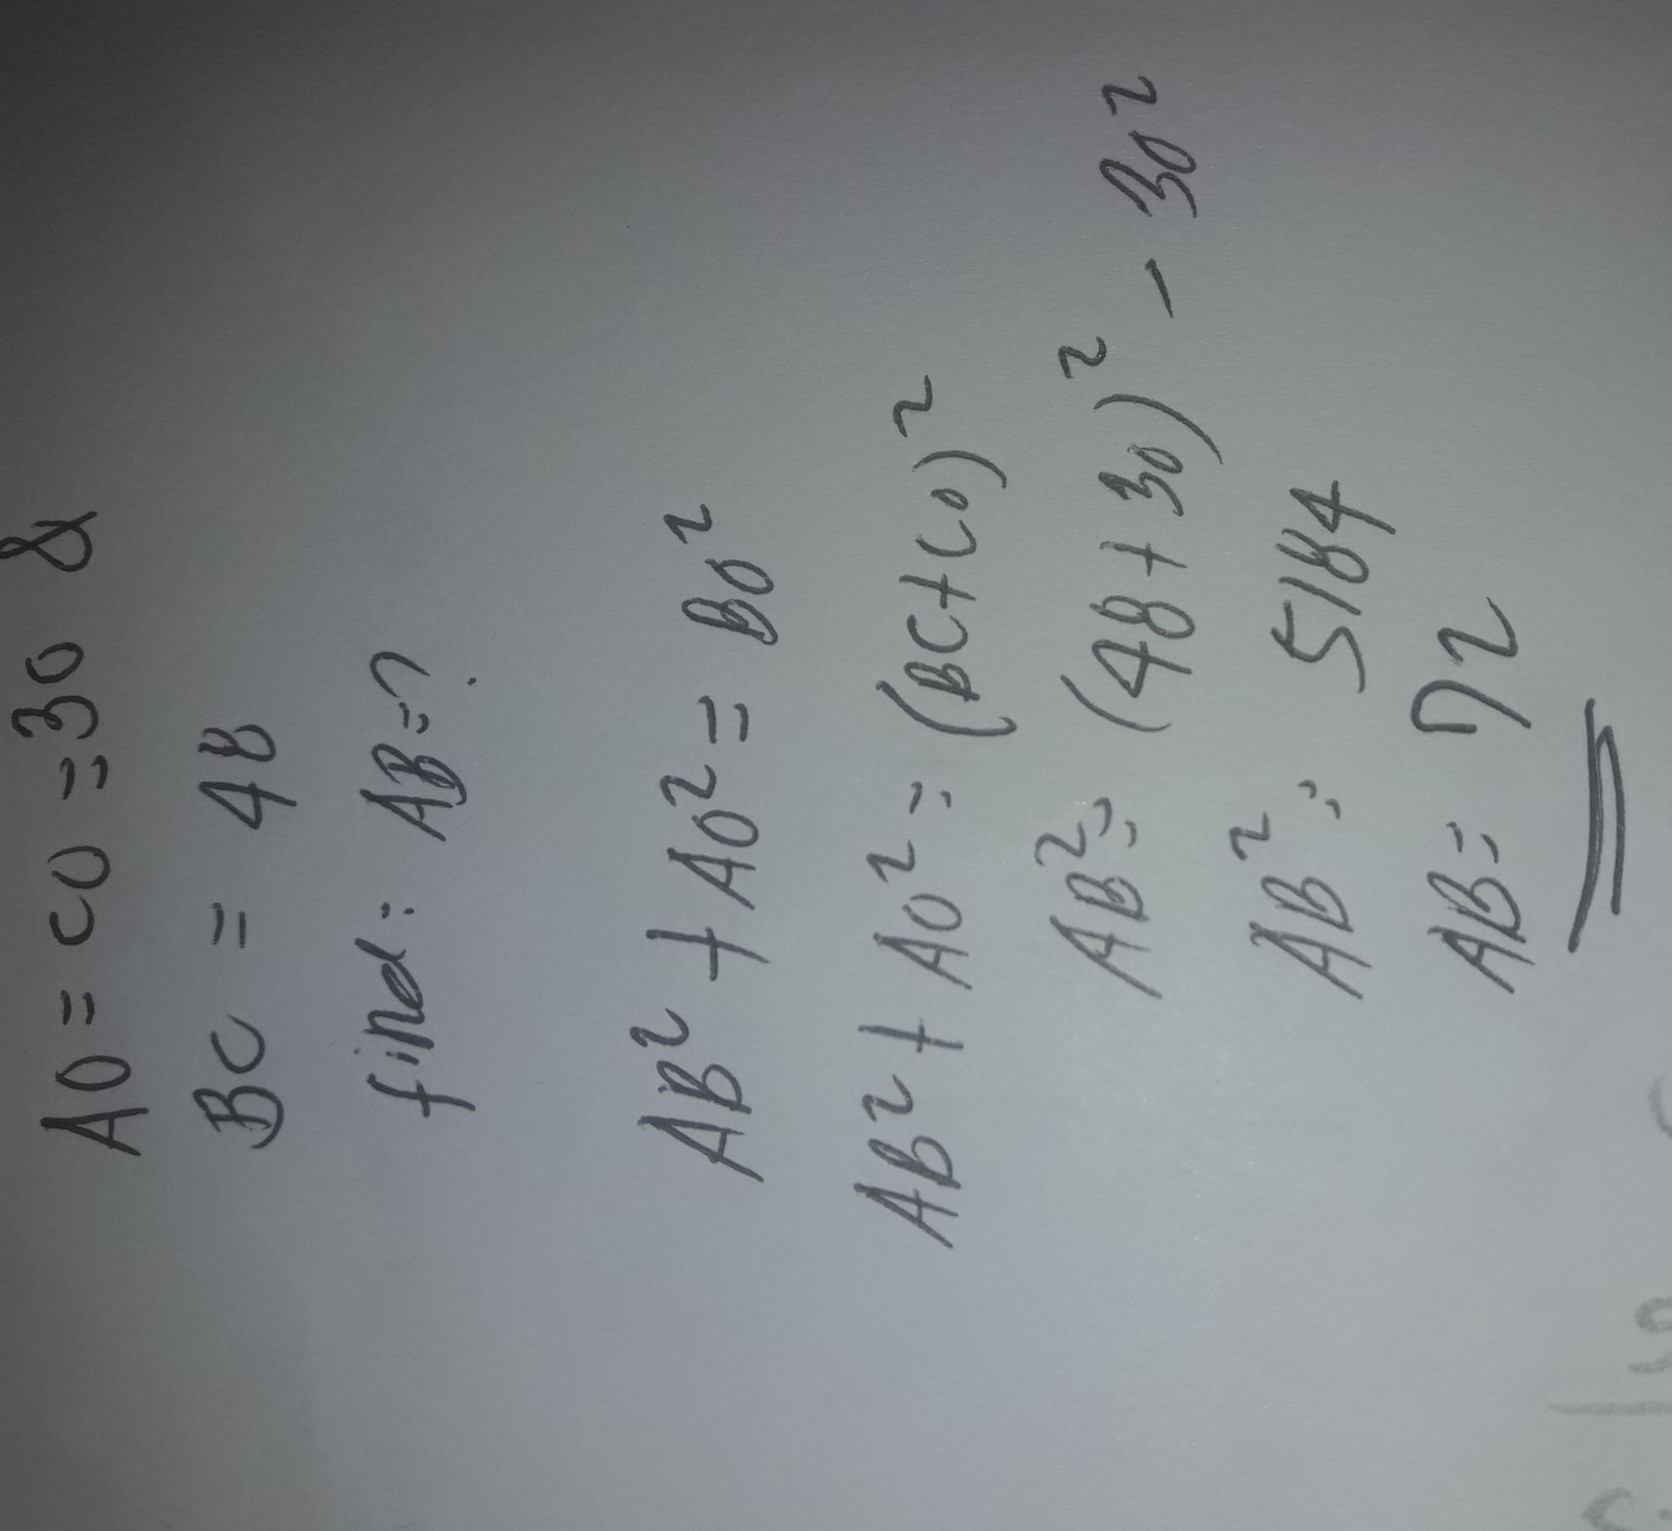 AO = CO = 30 &
BC = 48
find: AB = ?
AB² + AO² = BO²
AB² + AO² = (BC + CO)²
AB² = (48 + 30)² - 30²
AB² = 5184
AB = 72